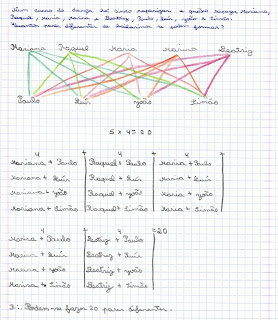 Num curso de dança de salão
Raquel, Maria, Marina e Beatriz, Paulo, Luís, João e Simão.
Quantos pares diferentes de dançarinos se podem formar?
Mariana Raquel Maria Marina Beatriz
Paulo Luís João Simão
5 x 4 = 20
4 4 4
Mariana + Paulo Raquel + Paulo Maria + Paulo
Mariana + Luís Raquel + Luís Maria + Luís
Mariana + João Raquel + João Maria + João
Mariana + Simão Raquel + Simão Maria + Simão
4 4 = 20
Marina + Paulo Beatriz + Paulo
Marina + Luís Beatriz + Luís
Marina + João Beatriz + João
Marina + Simão Beatriz + Simão
R.: Podem-se fazer 20 pares diferentes.